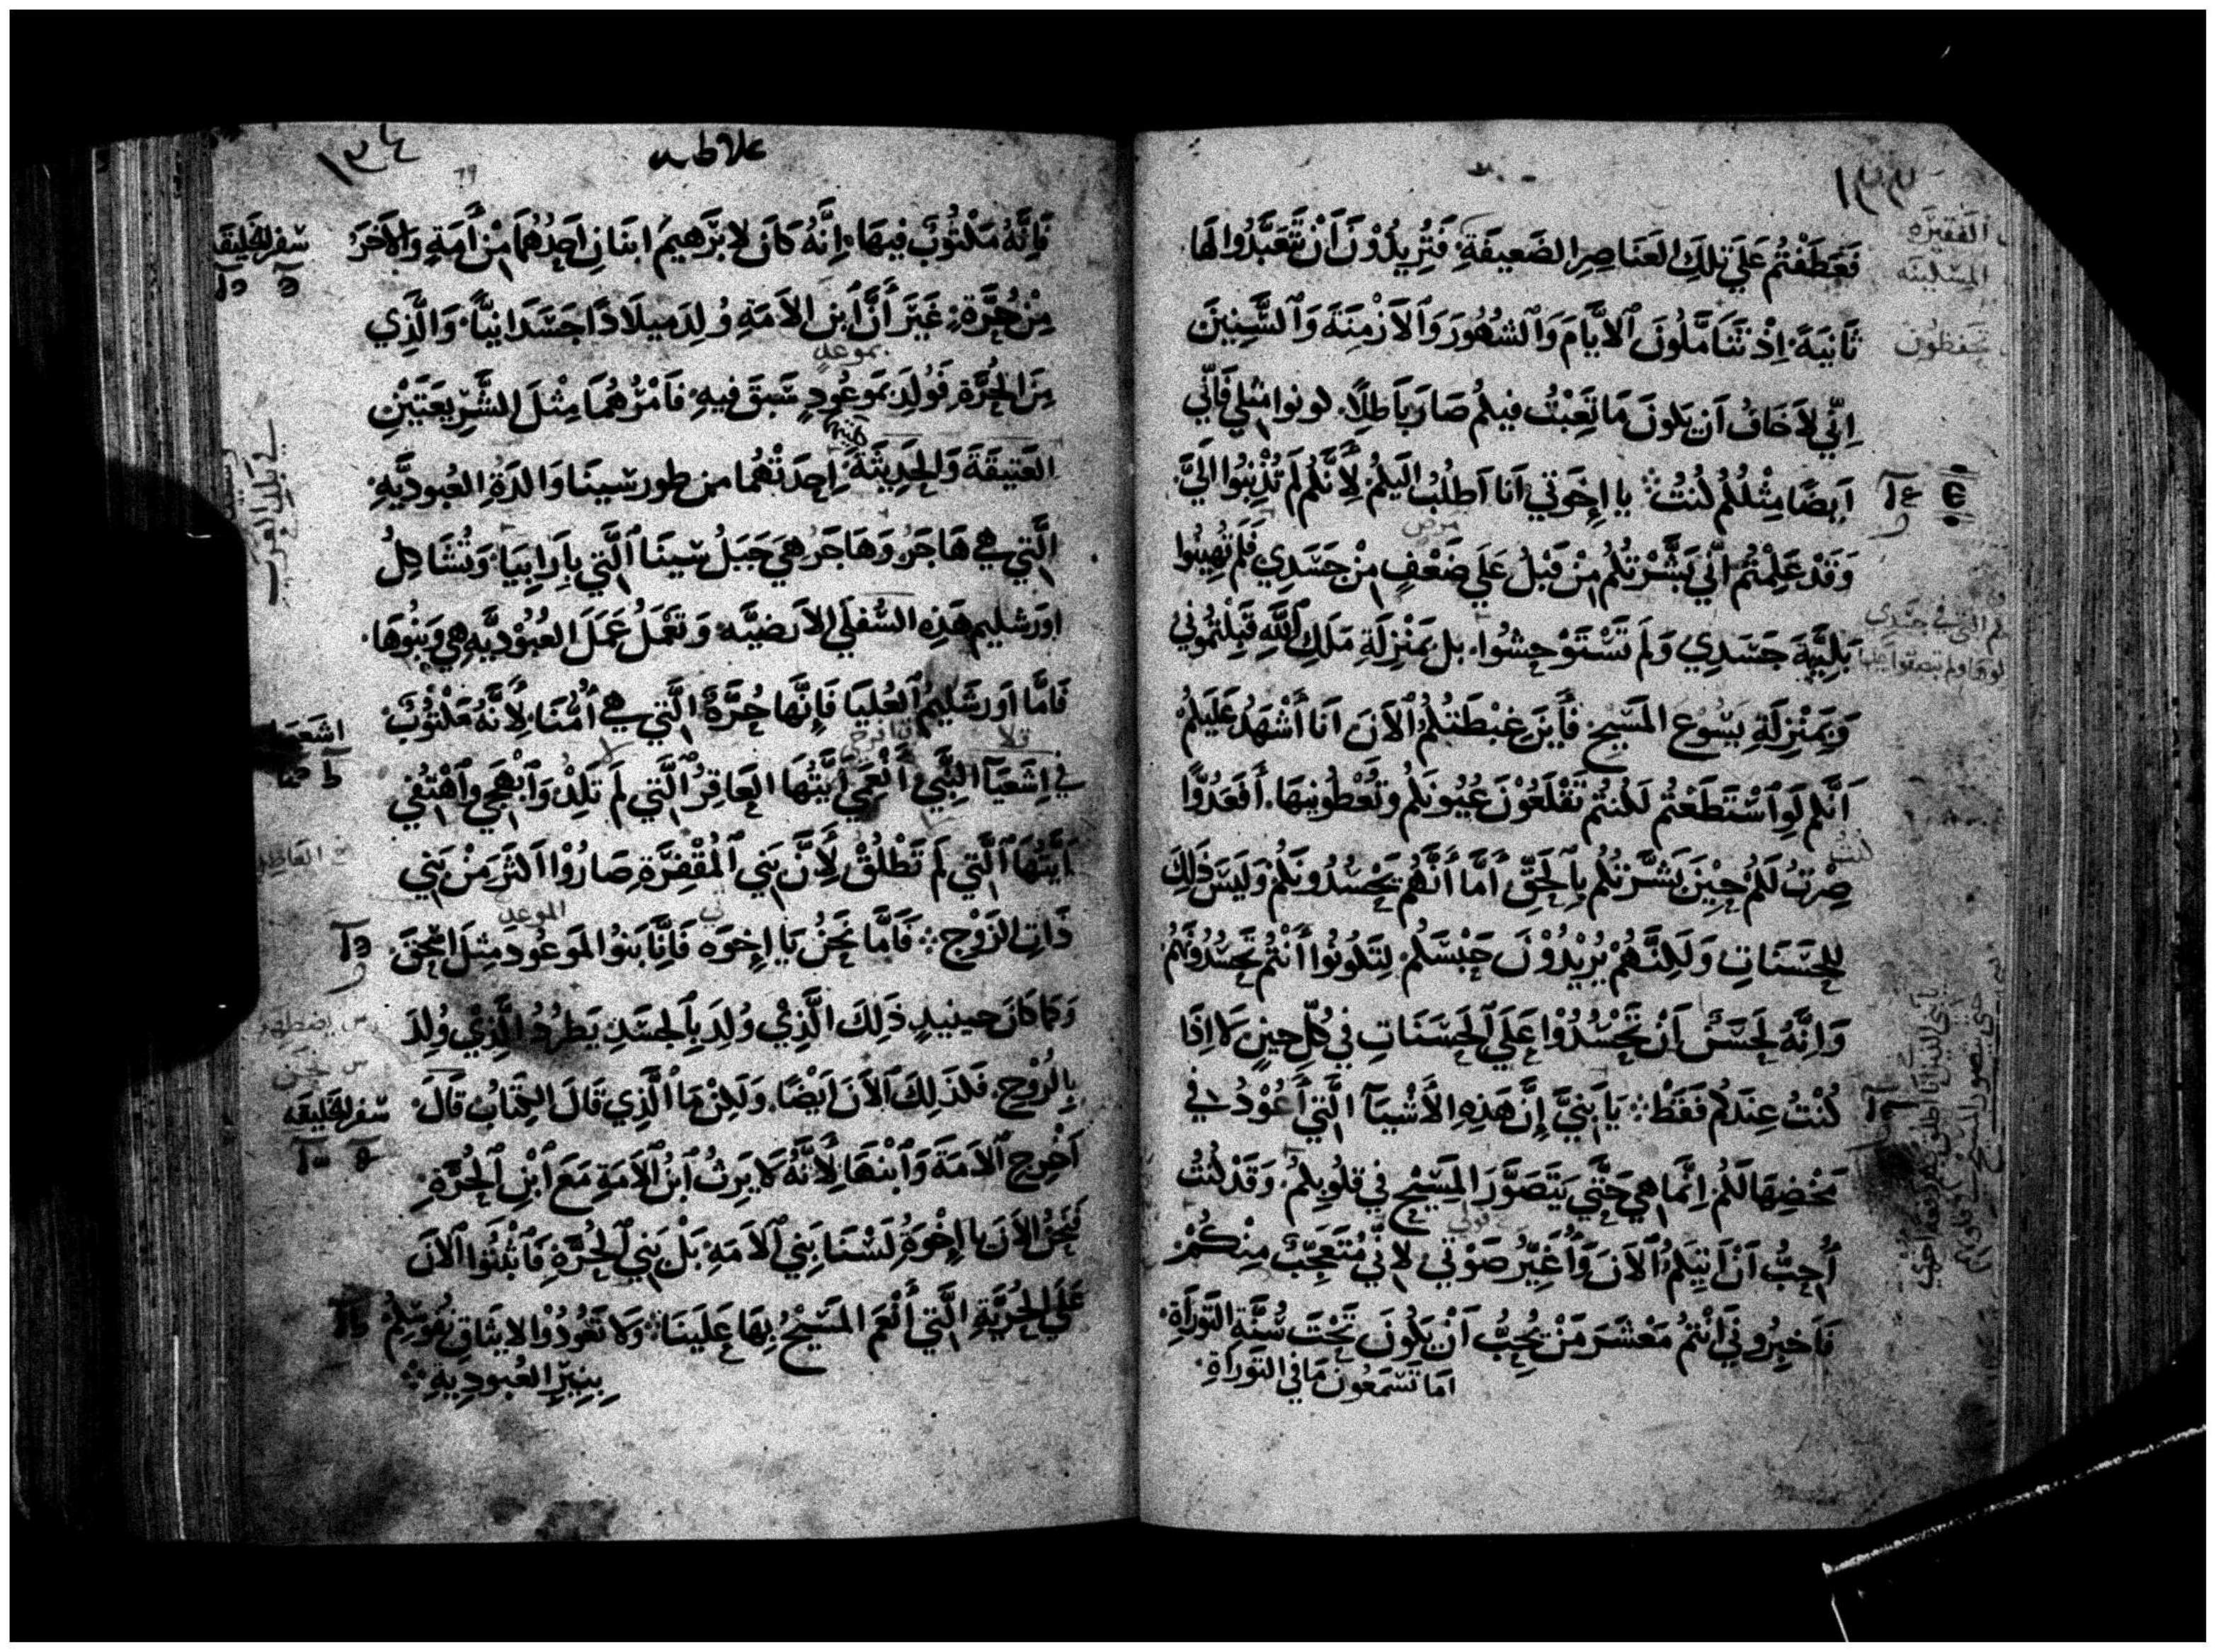 ١٣٣
فَعَطَفْتُم عَلَي تِلكَ العَنَاصِرِ الضَعيفَةِ فَتُرِيدُوْنَ اَنْ تَتَعَبَّدُوا لَهَا
ثَانِيَةً اِذْ تَتَامَّلُونَ الاَيَّامَ وَالشُهُورَ وَالاَزْمِنَةَ وَالسِّنِينَ
اِنّي لاَخَافُ اَن يَكونَ مَا تَعِبْتُ فيكُم صَارَ بَاطِلًا. كونوا مثلي فَاِنّي
اَيضًا مِثْلُكُم كُنتُ ۞ يا اِخوَتي اَنا اَطلُبُ اِلَيكُم لِأَنَّكُم لَم تُذْنِبُوا اِلَيَّ.
وَقَدْ عَلِمْتُم اَنّي بَشَّرْتُكُم مِنْ قَبْلُ عَلَي ضَعْفٍ مِنْ جَسَدِي فَلَم تُهِينُوا
بَلِيَّةَ جَسَدِي وَلَم تَسْتَوْحِشُوا. بل بمَنْزِلَةِ مَلَكِ اللَّهِ قَبِلْتُمُوني
وَبِمَنْزِلَةِ يَسُوعَ المَسِيحِ فَأَينَ غِبْطَتُكُم الاَنَ اَنا أَشْهَدُ عَلَيكُم
اَنَّكُم لَوِ اسْتَطَعْتُم لَكُنتُم تَقْلَعُوْنَ عُيُونَكُم وتُعْطُونِيهَا. أَفَعَدُوًّا
صِرْتُ لَكُم حِيْنَ بَشَّرتُكُم بِالحَقِّ أَمَّا أَنَّهُم يَحْسُدُونَكُم وَلَيسَ ذَلِكَ
لِلحَسَنَاتِ وَلَكِنَّهُمْ يُرِيْدُوْنَ حَبْسَكُم لِتَكُونُوا أَنْتُم تَحسُدُونَهُمْ
وَاِنَّهُ لَحَسَنٌ اَنْ تَحْسُدُوْا عَلَي الحَسَنَاتِ في كُلِّ حينٍ لَا اِذَا
كُنْتُ عِندَكُم فَقَطْ ۞ يَا بَنِيَّ إِنَّ هَذِهِ الأَشْيَآ الَّتي أَعُوْدُ في
مَخْضِهَا لَكُم اِنَّما هِي حَتَّي يَتَصَوَّرَ المَسِيْح في قلُوبِكُم. وَقَدْ كُنتُ
أُحِبُّ اَنْ اتِيَكُمُ الاَنَ وَأُغَيِّرُ صَوْتي لاِنّي مُتَعَجِّبٌ مِنْكُمْ
فَاَخبِرُوني اَنْتُم مَعْشَرَ مَنْ يُحِبُّ اَنْ يَكُونَ تَحْتَ سُنَّةِ التَورَاةِ.
اَمَا تَسمَعُونَ مَا في التَورَاةِ.
١٣٤
غلاطيه
فَاِنَّهُ مَكْتُوبٌ فيهَا اِنَّهُ كَانَ لاِبرَهِيمَ ابنَانِ اَحَدُهُمَا مِنْ أَمَةٍ وَالاَخَرُ
سفر الخليقه
مِنْ حُرَّةٍ غَيْرَ أَنَّ ابنَ الاَمَةِ وُلِدَ مِيلَادًا جَسَدَانِيًّا وَالَّذِي
بموعد
مِنَ الحُرَّةِ فَوُلِدَ بمَوعُودٍ سَبَقَ فيهِ. فَاَمْرُهُمَا مِثْلَ الشَّرِيعَتَيْنِ
العَتيقَةَ وَالحَدِيثَة اِحدَاهُما من طور سينَا وَالدَةِ العُبوديَّةِ
الَّتي هي هَاجَرُ وَهَاجَرُ هِيَ جَبَلُ سِينَا الَّتي بِاَرَابِيَا. وَتُشَاكِلُ
اورَشليم هَذِهِ السُفلَي الاَرضيَّه وَتَعْمَلُ عَمَلَ العُبُوْديَّهِ هِي وَبَنُوهَا.
فَامَّا اورَشَلِيمُ العُليَا فَاِنَّها حُرَّةٌ الَّتي هي اُمُّنَا. لِأَنَّهُ مَكْتُوبٌ
في اِشَعيَآ النَّبِي أَنْعَمِي اَيَّتُهَا العَاقِرُ الَّتي لَم تَلِدْ وَابْهَجِي وَاهْتِفي
اَيَّتُهَا الَّتي لَم تَطْلُقْ لِأَنَّ بَني المُقْفِرَّةِ صَارُوْا اكثَرَ مِنْ بَني
الموعد
ذَاتِ الزَوْجِ ۞ فَاَمَّا نَحنُ يَا اِخوَه فَاِنَّا بَنوُ المَوعُود مِثلَ اسحَقَ
وَكَمَا كَانَ حينيذٍ ذَلِكَ الَّذِي وُلِدَ بِالجسَدِ يَطرُدُ الَّذِيْ وُلِدَ
بِالرُوْحِ. فَكذَلِكَ الاَنَ اَيْضًا. وَلَكِنْ مَا الَّذِي قَالَ الكِتَابُ قَالَ
سفر الخليقه
اَخْرِجِ الاَمَةَ وَابْنَهَا لِأَنَّهُ لَا يَرِثُ ابْنُ الاَمَةِ مَعَ ابْنِ الحُرَّةِ.
فَنَحنُ الاَنَ يا اِخْوَةُ لَسْنَا بَنِي الاَمَهِ بَلْ بَنِي الحُرَّةِ فَاثْبُتُوا الاَنَ
عَلَي الحُرِّيَّةِ الَّتي أَنْعَمَ المَسِيْحُ بِهَا عَلَينَا. وَلَا تَعُودُوْا لايثَاقِ نفُوسِكُم
بِنِيرِ العُبودِيةِ ۞